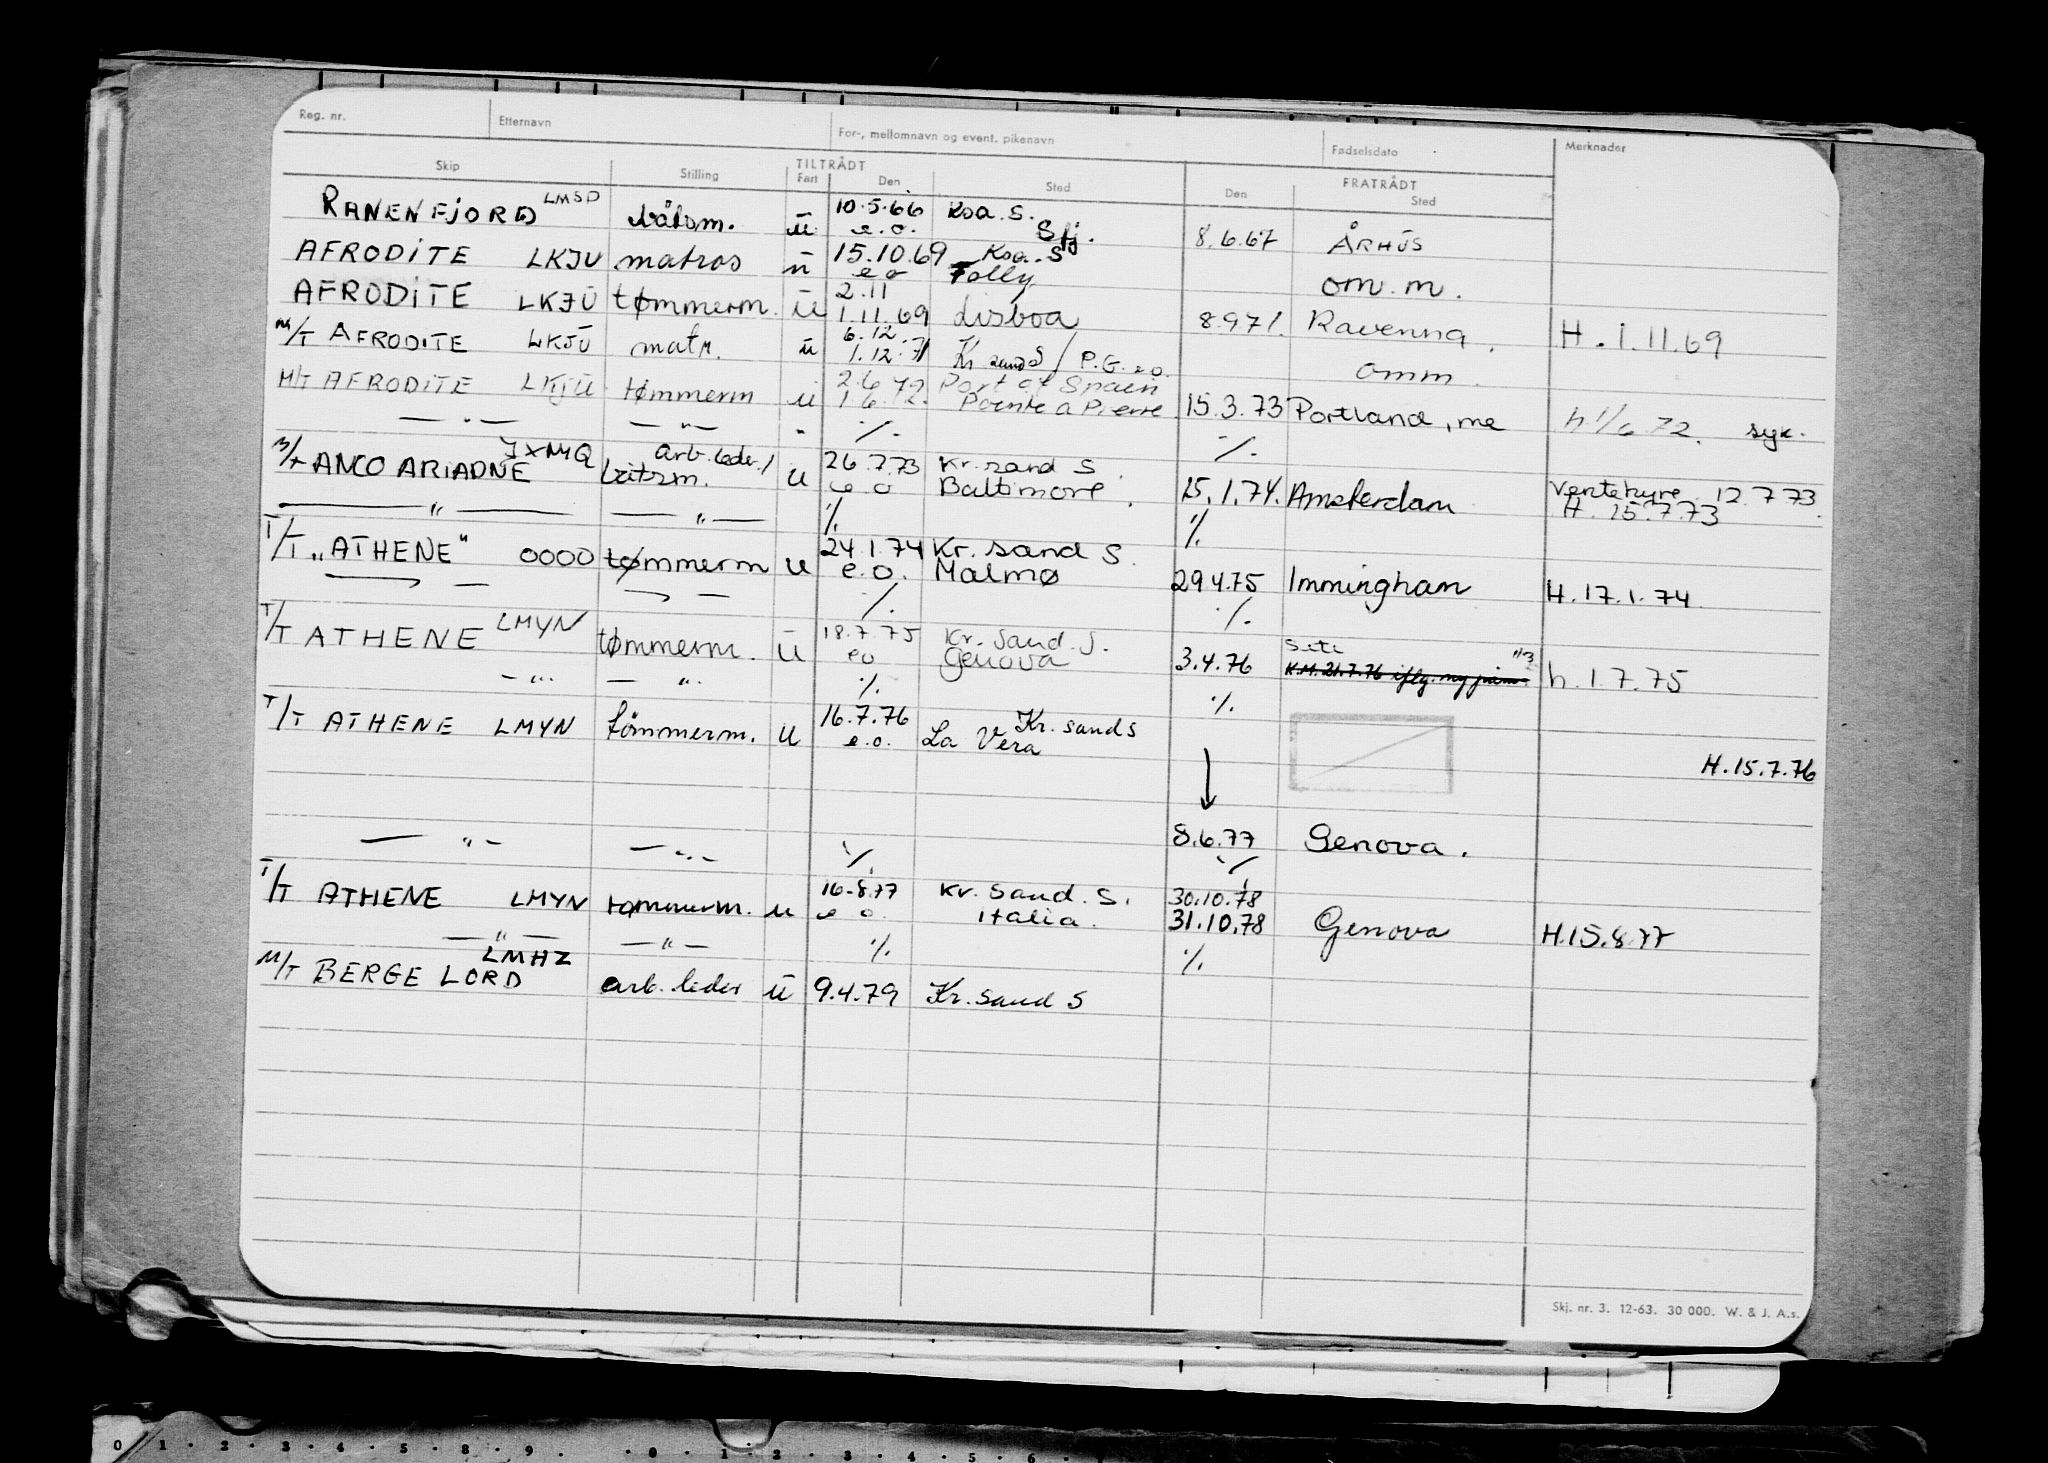 Reg. nr. Etternavn For-, mellomnavn og event. pikenavn Fødselsdato Merknader
Skip Stilling TILTRÅDT Fart Den Sted FRATRÅDT Den Sted
RANENFJORD LMSD båtsm. ü 10.5.66 Ksa. S.
e.o. Sfj. 8.6.67 ÅRHUS
AFRODITE LKJU matros ü 15.10.69 Ksa. S
e o Folly om. m.
AFRODITE LKJU tømmerm. ü 2.11
1.11.69 Lisboa 8.9.71. Ravenna. H. 1.11.69
M/T AFRODITE LKJU matr. ü 6.12.
1.12.71 Kr sand S / P.G. e.o. omm.
M/T AFRODITE LKJU tømmerm ü 2.6.72 Port of Spain
1.6.72. Pointe a Pierre 15.3.73 Portland, me h 1/6 72. syk.
— " — — " — " ·/. ·/.
M/T ANCO ARIADNE JXMQ arb. leder / båtsm. u 26.7.73 Kr. sand S.
e o Baltimore. 15.1.74. Amsterdam Ventehyre 12.7.73.
H. 15.7.73
— " — — " — ·/. ·/.
T/T "ATHENE" OOOO tømmerm u 24.1.74 Kr. sand S.
e.o. Malmø 29.4.75 Immingham H. 17.1.74
— — ·/. ·/.
T/T ATHENE LMYN tømmerm. ü 18.7.75 Kr. Sand. S.
eo Genova 3.4.76 K.M. 21.7.76 iflg. ny h. 1.7.75
— " — — " — ·/. ·/.
T/T ATHENE LMYN tömmerm. u 16.7.76 Kr. sand S
e.o. La Vera
H. 15.7.76
— " — — " — ·/. 8.6.77 Genova.
·/.
T/T ATHENE LMYN tömmerm. u 16.8.77 Kr. Sand. S. 30.10.78
e o. Italia. 31.10.78 Genova H. 15.8.77
— " — — " — ·/. ·/.
M/T BERGE LORD LMHZ arb. leder ü 9.4.79 Kr. Sand S
Skj. nr. 3. 12-63. 30 000. W. & J. A.s.
0 1 2 3 4 5 8 9 0 1 2 3 4 5 6